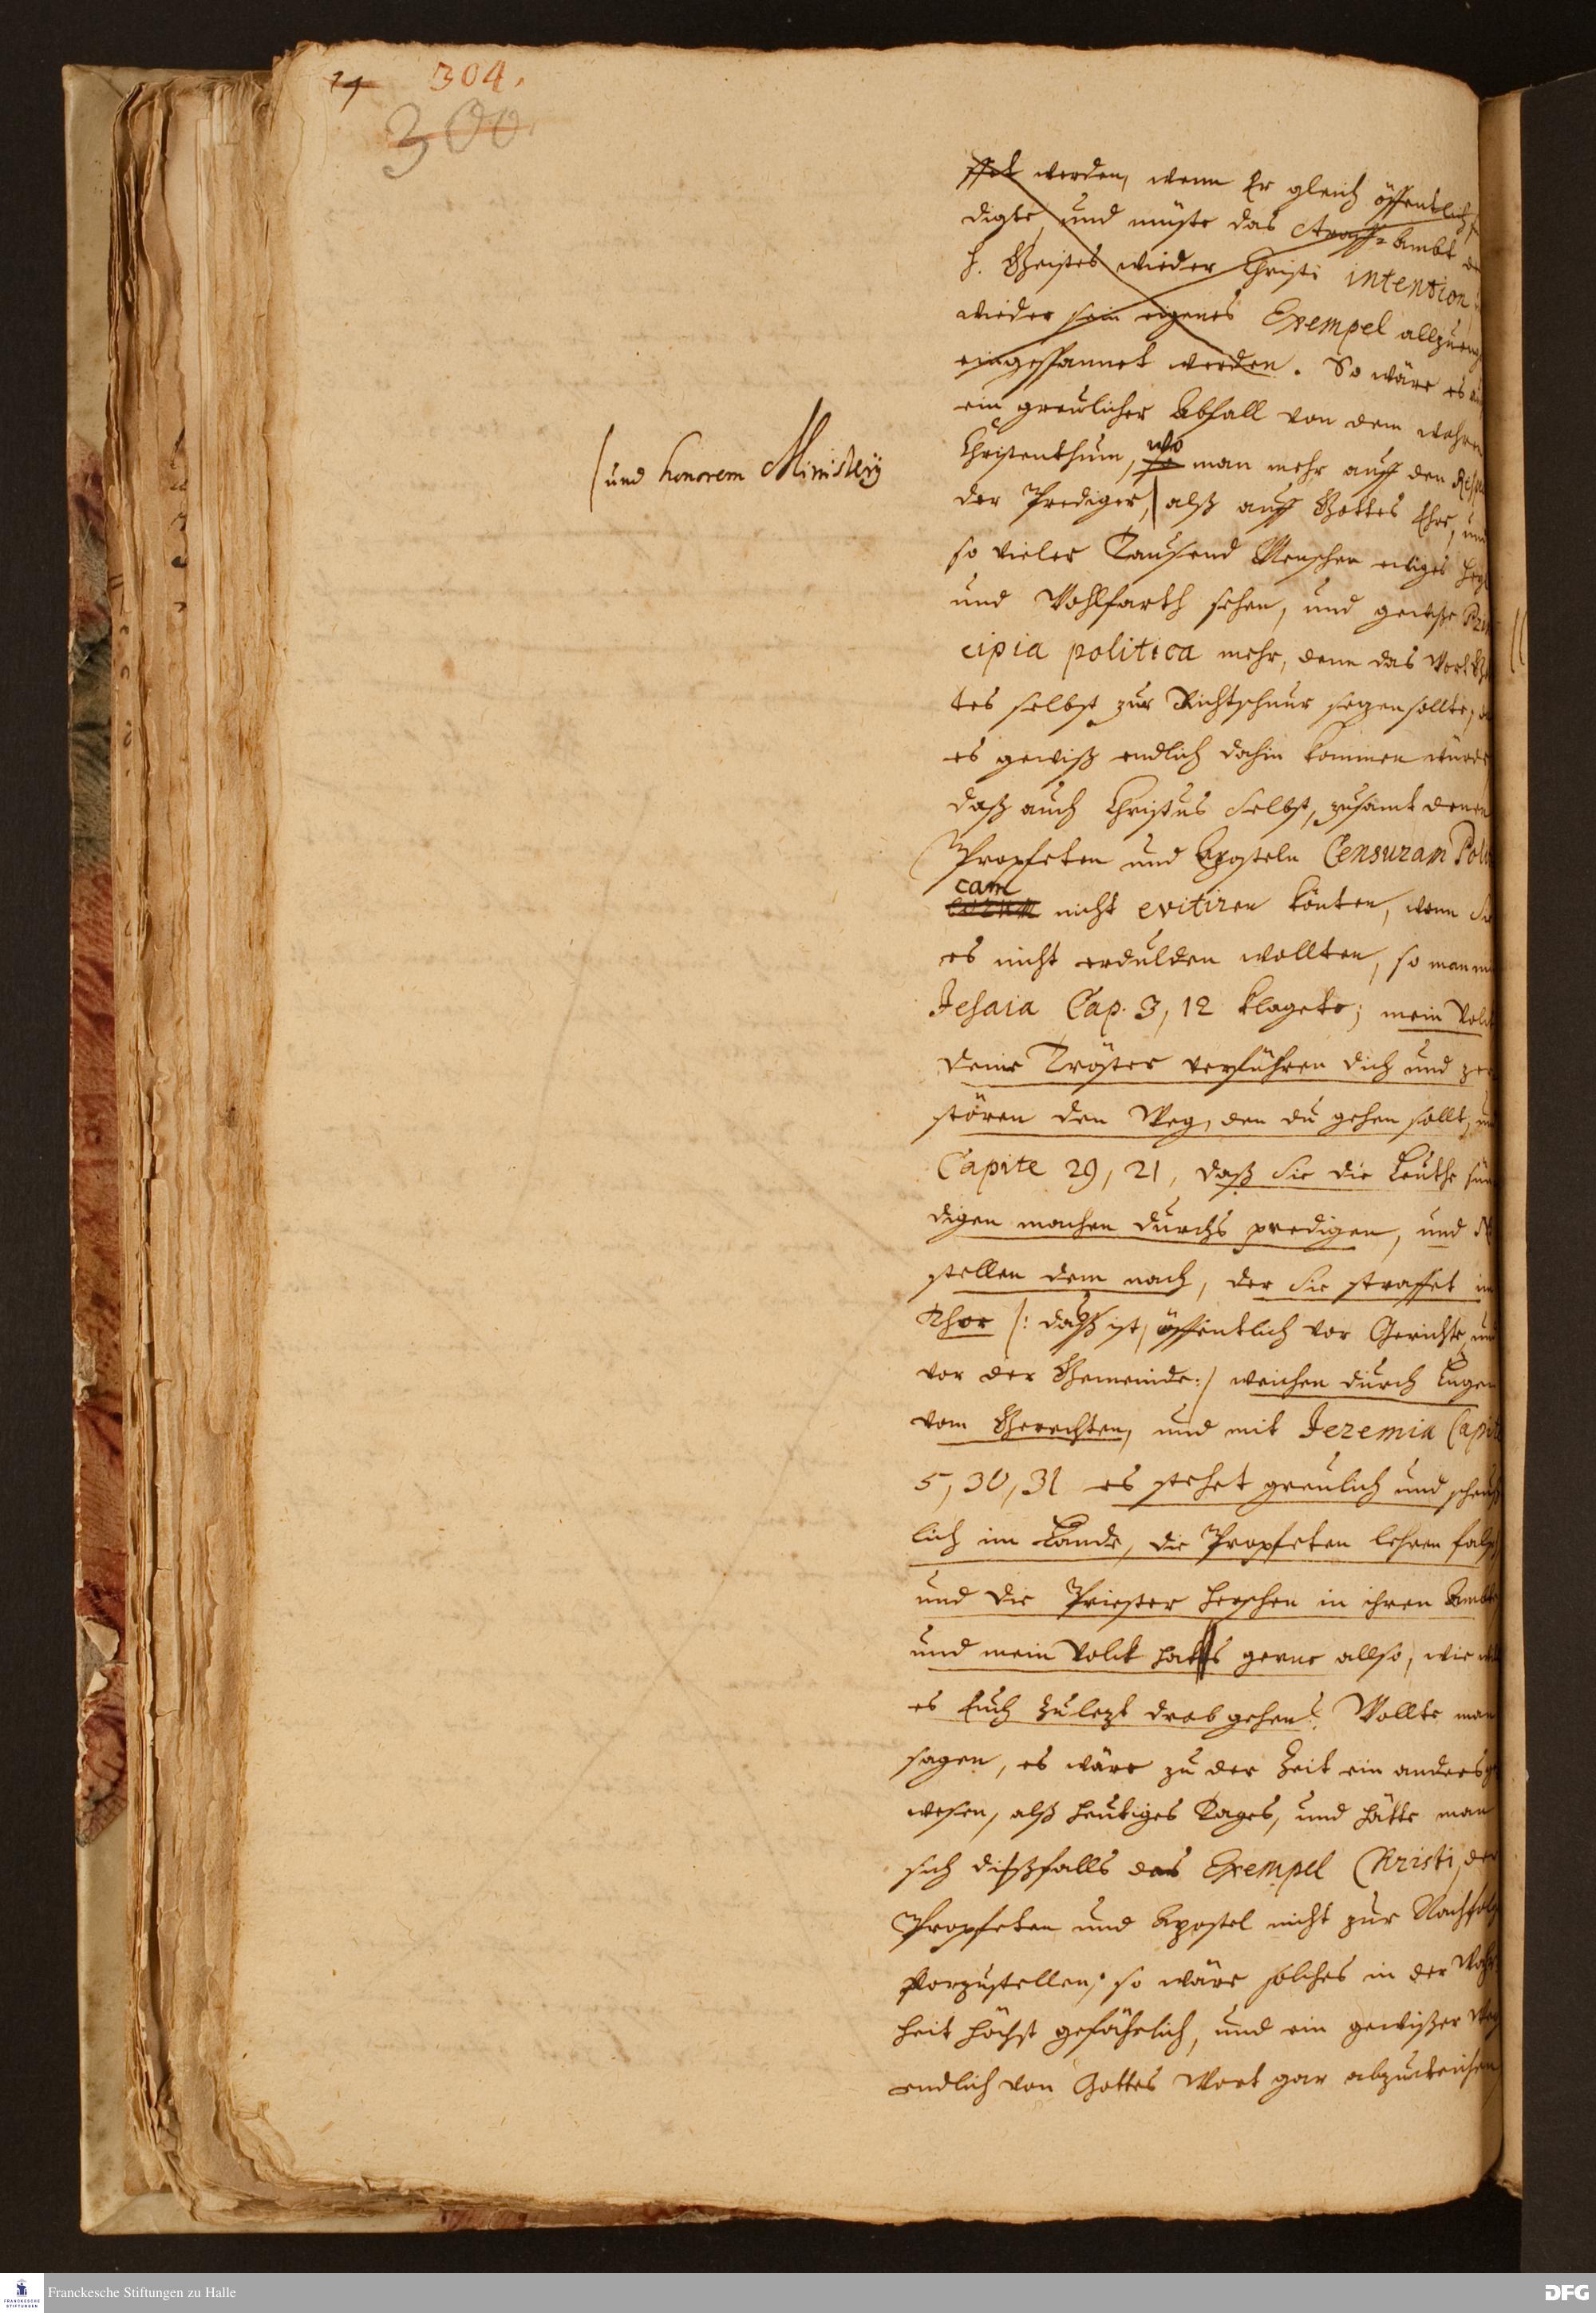 304.
300
ffet werden, wenn Er gleich öffentlich
digte, und müste das Straff-Ambt
h. Geistes wieder Christi intention
wieder sein eigenes Exempel allzueng
eingespannet werden. So wäre es
ein greulicher Abfall von dem wahren
Christenthum, wo man mehr auff den
/und honorem Ministerij
der Prediger, alß auff Gottes Ehre, und
so vieler Tausend Menschen ewiges
und Wohlfarth sehen, und gewiße
cipia politica mehr, denn das Wort
tes selbst zur Richtschnur setzen sollte,
es gewiß endlich dahin kommen würde
daß auch Christus Selbst, zusamt denen
Propheten und Aposteln Censuram
cam
nicht evitiren könten, wenn
es nicht erdulden wollten, so man
Jesaia Cap. 3, 12 klagete; mein Volck
deine Tröster verführen dich und zer
stören den Weg, den du gehen sollt,
Capite 29, 21, daß Sie die Leuthe sün
digen machen durchs predigen, und
stellen dem nach, der Sie straffet im
Thor /: daß ist, öffentlich vor Gerichte, und
vor der Gemeinde:/ weichen durch Lügen
vom Gerechten, und mit Jeremia Capite
5, 30, 31 es stehet greulich und scheuß
lich im Lande, die Propheten lehren falsch
und die Priester herschen in ihren Ambte
und mein Volck hats gerne allso, wie
es Euch zulezt drob gehen? Wollte man
sagen, es wäre zu der Zeit ein anders
wesen, alß heutiges Tages, und hätte man
sich dißfalls das Exempel Christi, der
Propheten und Apostel nicht zur Nachfolg
vorzustellen; so wäre solches in der Wahr
heit höchst gefährlich, und ein gewißer Weg
endlich von Gottes Wort gar abzuweichen
Franckesche Stiftungen zu Halle
DFG